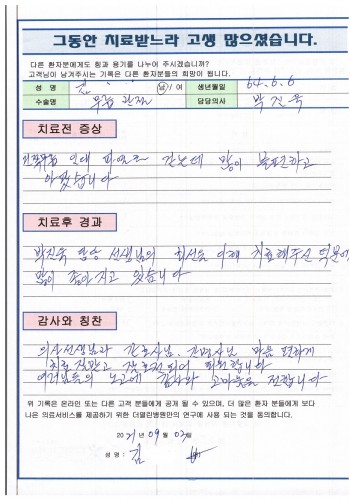 그동안 치료받느라 고생 많으셨습니다.
다른 환자분에게도 힘과 용기를 나누어 주시겠습니까?
고객님이 남겨주시는 기록은 다른 환자분들의 희망이 됩니다.
성 명 김 남/여 생년월일 64.6.6
수술명 무릎 관절 담당의사 박진욱
치료전 증상
인대 파열로 걷는데 많이 불편하고
아팠습니다
치료후 경과
박진욱 담당 선생님의 최선을 다해 치료해주신 덕분에
많이 좋아지고 있습니다
감사와 칭찬
의사선생님과 간호사님, 간병사님 마음 편하게
치료 잘받고 퇴원합니다
여러님들의 노고에 감사와 고마움을 전합니다
위 기록은 온라인 또는 다른 고객 분들에게 공개 될 수 있으며, 더 많은 환자 분들에게 보다
나은 의료서비스를 제공하기 위한 더열린병원만의 연구에 사용 되는 것을 동의합니다.
2021년 09월 03일
성명: 김